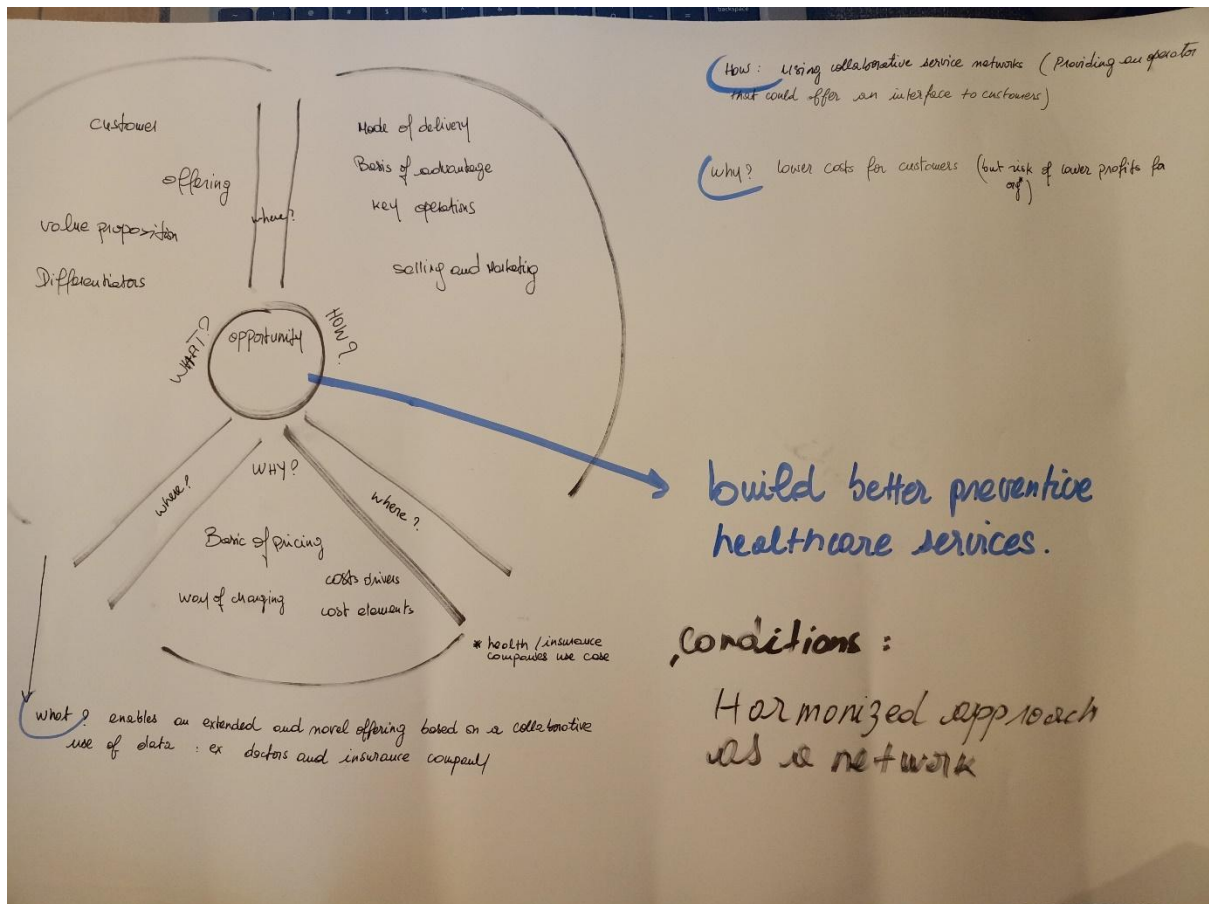 Customer
offering
value proposition
Differentiators
where?
Mode of delivery
Basis of advantage
key operations
Selling and Marketing
WHAT?
opportunity
HOW?
where?
WHY?
where?
Basic of pricing
way of charging
costs drivers
cost elements
* health / insurance
companies use case
what? enables an extended and novel offering based on a collaborative
use of data : ex doctors and insurance company
How: Using collaborative service networks (Providing an operator
that could offer an interface to customers)
Why? lower costs for customers (but risk of lower profits for
org)
build better preventive
healthcare services.
Conditions :
Harmonized approach
as a network
backspace